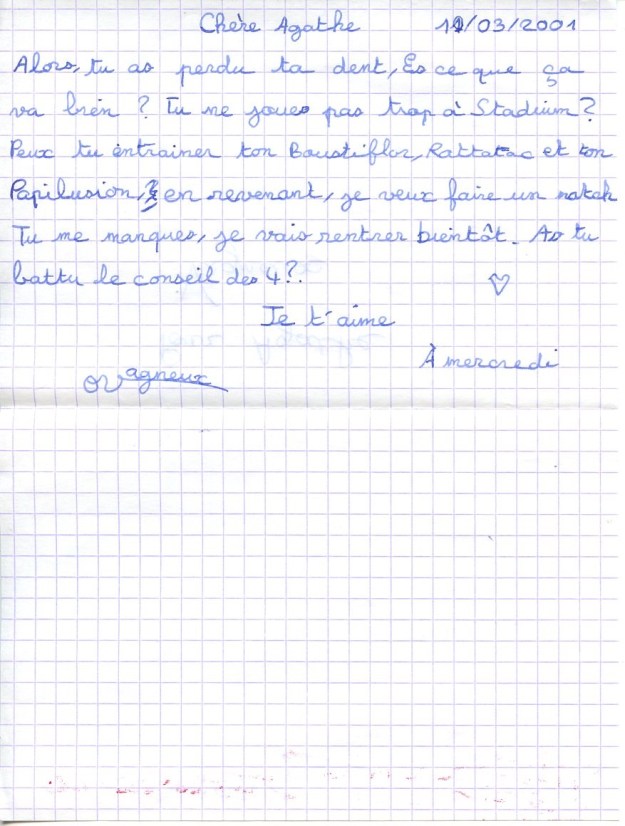 Chère Agathe 12/03/2001
Alors, tu as perdu ta dent, Es ce que ça
va bien ? Tu ne joues pas trop à Stadium ?
Peux tu entrainer ton Boustiflor, Rattatac et ton
Papilusion, en revenant, je veux faire un match
Tu me manques, je vais rentrer bientôt. As tu
battu le conseil des 4 ?.
Je t'aime
À mercredi
agneux